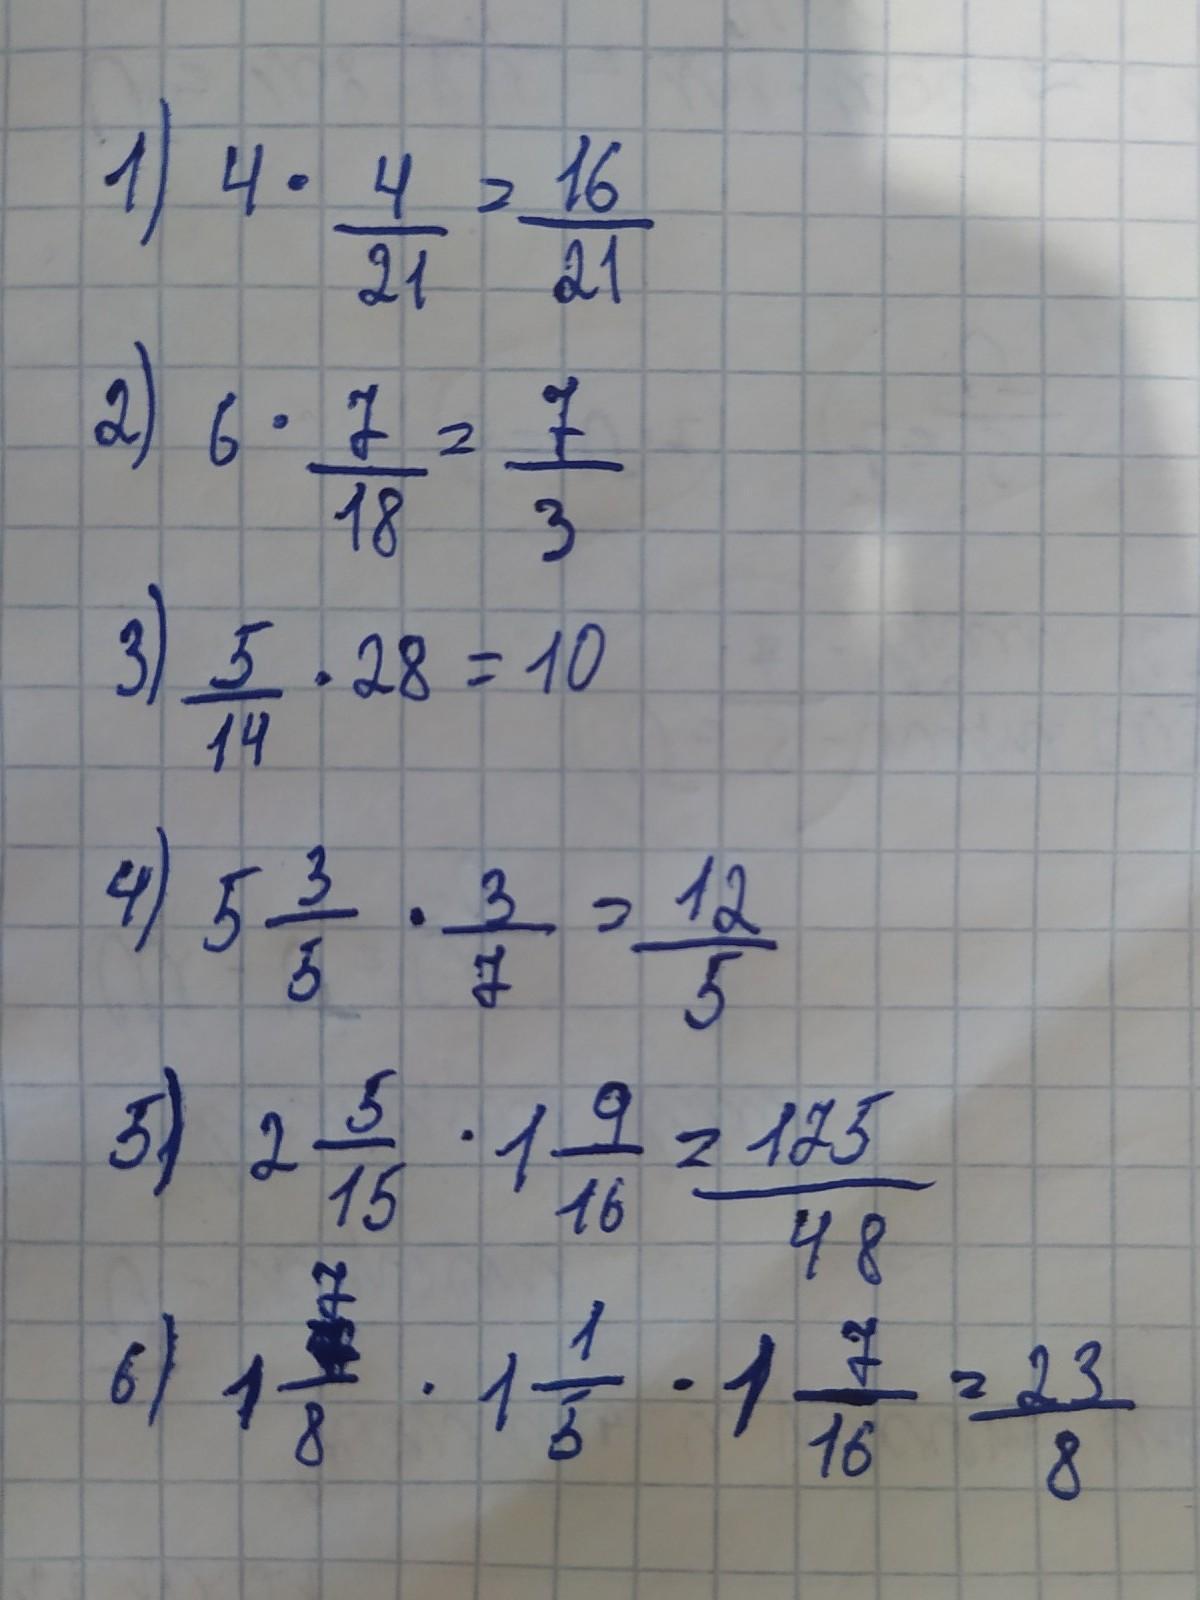 1) 4 · 4/21 = 16/21
2) 6 · 7/18 = 7/3
3) 5/14 · 28 = 10
4) 5 3/5 · 3/7 = 12/5
5) 2 5/15 · 1 9/16 = 175/48
6) 1 7/8 · 1 1/5 · 1 7/16 = 23/8